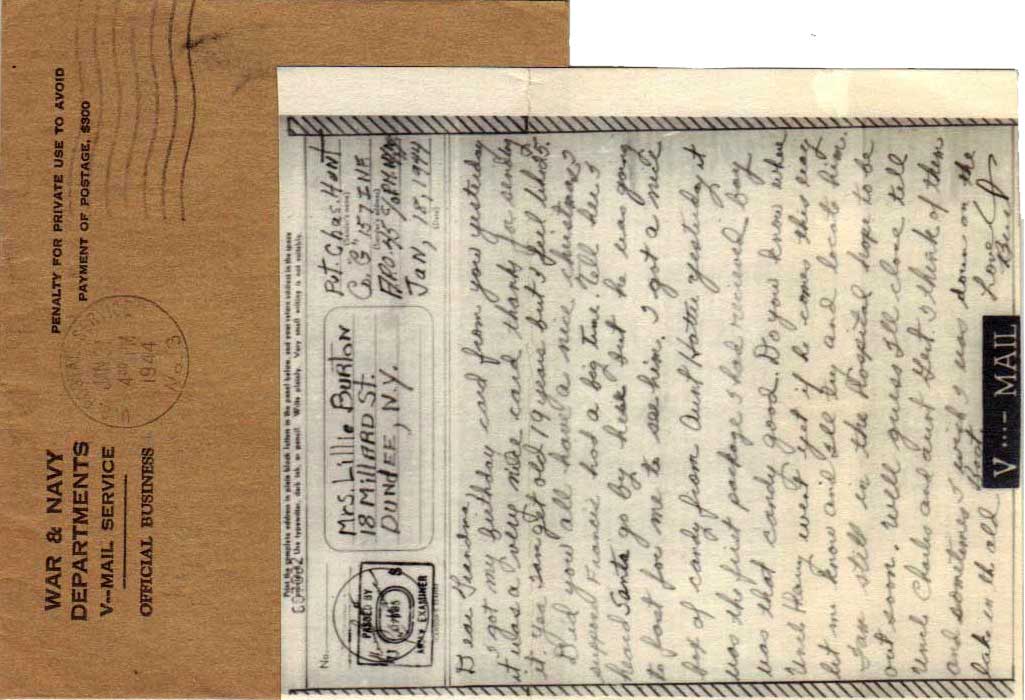 PENALTY FOR PRIVATE USE TO AVOID
PAYMENT OF POSTAGE, $300
JAN
4 PM
1944
No. 3
WAR & NAVY
DEPARTMENTS
V--MAIL SERVICE
OFFICIAL BUSINESS
Print the complete address in plain block letters in the panel below, and your return address in the space
provided. Use typewriter, dark ink, or pencil. Write plainly. Very small writing is not suitable.
No.
PASSED BY
U S
ARMY EXAMINER
Mrs. Lillie Burton
18 Millard St.
Dundee, N.Y.
Pvt. Chas. Hunt
Co. "G" 157 Inf
A.P.O. 45 c/o P.M. N.Y.
Jan, 18, 1944
(Date)
Dear Grandma,
I got my birthday card from you yesterday
it was a very nice card thanks for sending
it. Yes I am get old 19 years but I feel like 25.
Did you all have a nice christmas I
suppose Francis had a big time. Tell her I
heard Santa go by here but he was going
to fast for me to see him. I got a nice
box of candy from Aunt Hattie yesterday it
was the first package I had recieved boy
was that candy good. Do you know where
Uncle Harry went yet if he comes this way
let me know and Ill try and locate him.
I am still in the Hospital hope to be
out soon. Well guess Ill close tell
Uncle Charles and Aunt Gert I think of them
and sometimes wish I was down on the
lake in th all boat
Love
Bud
V...-MAIL